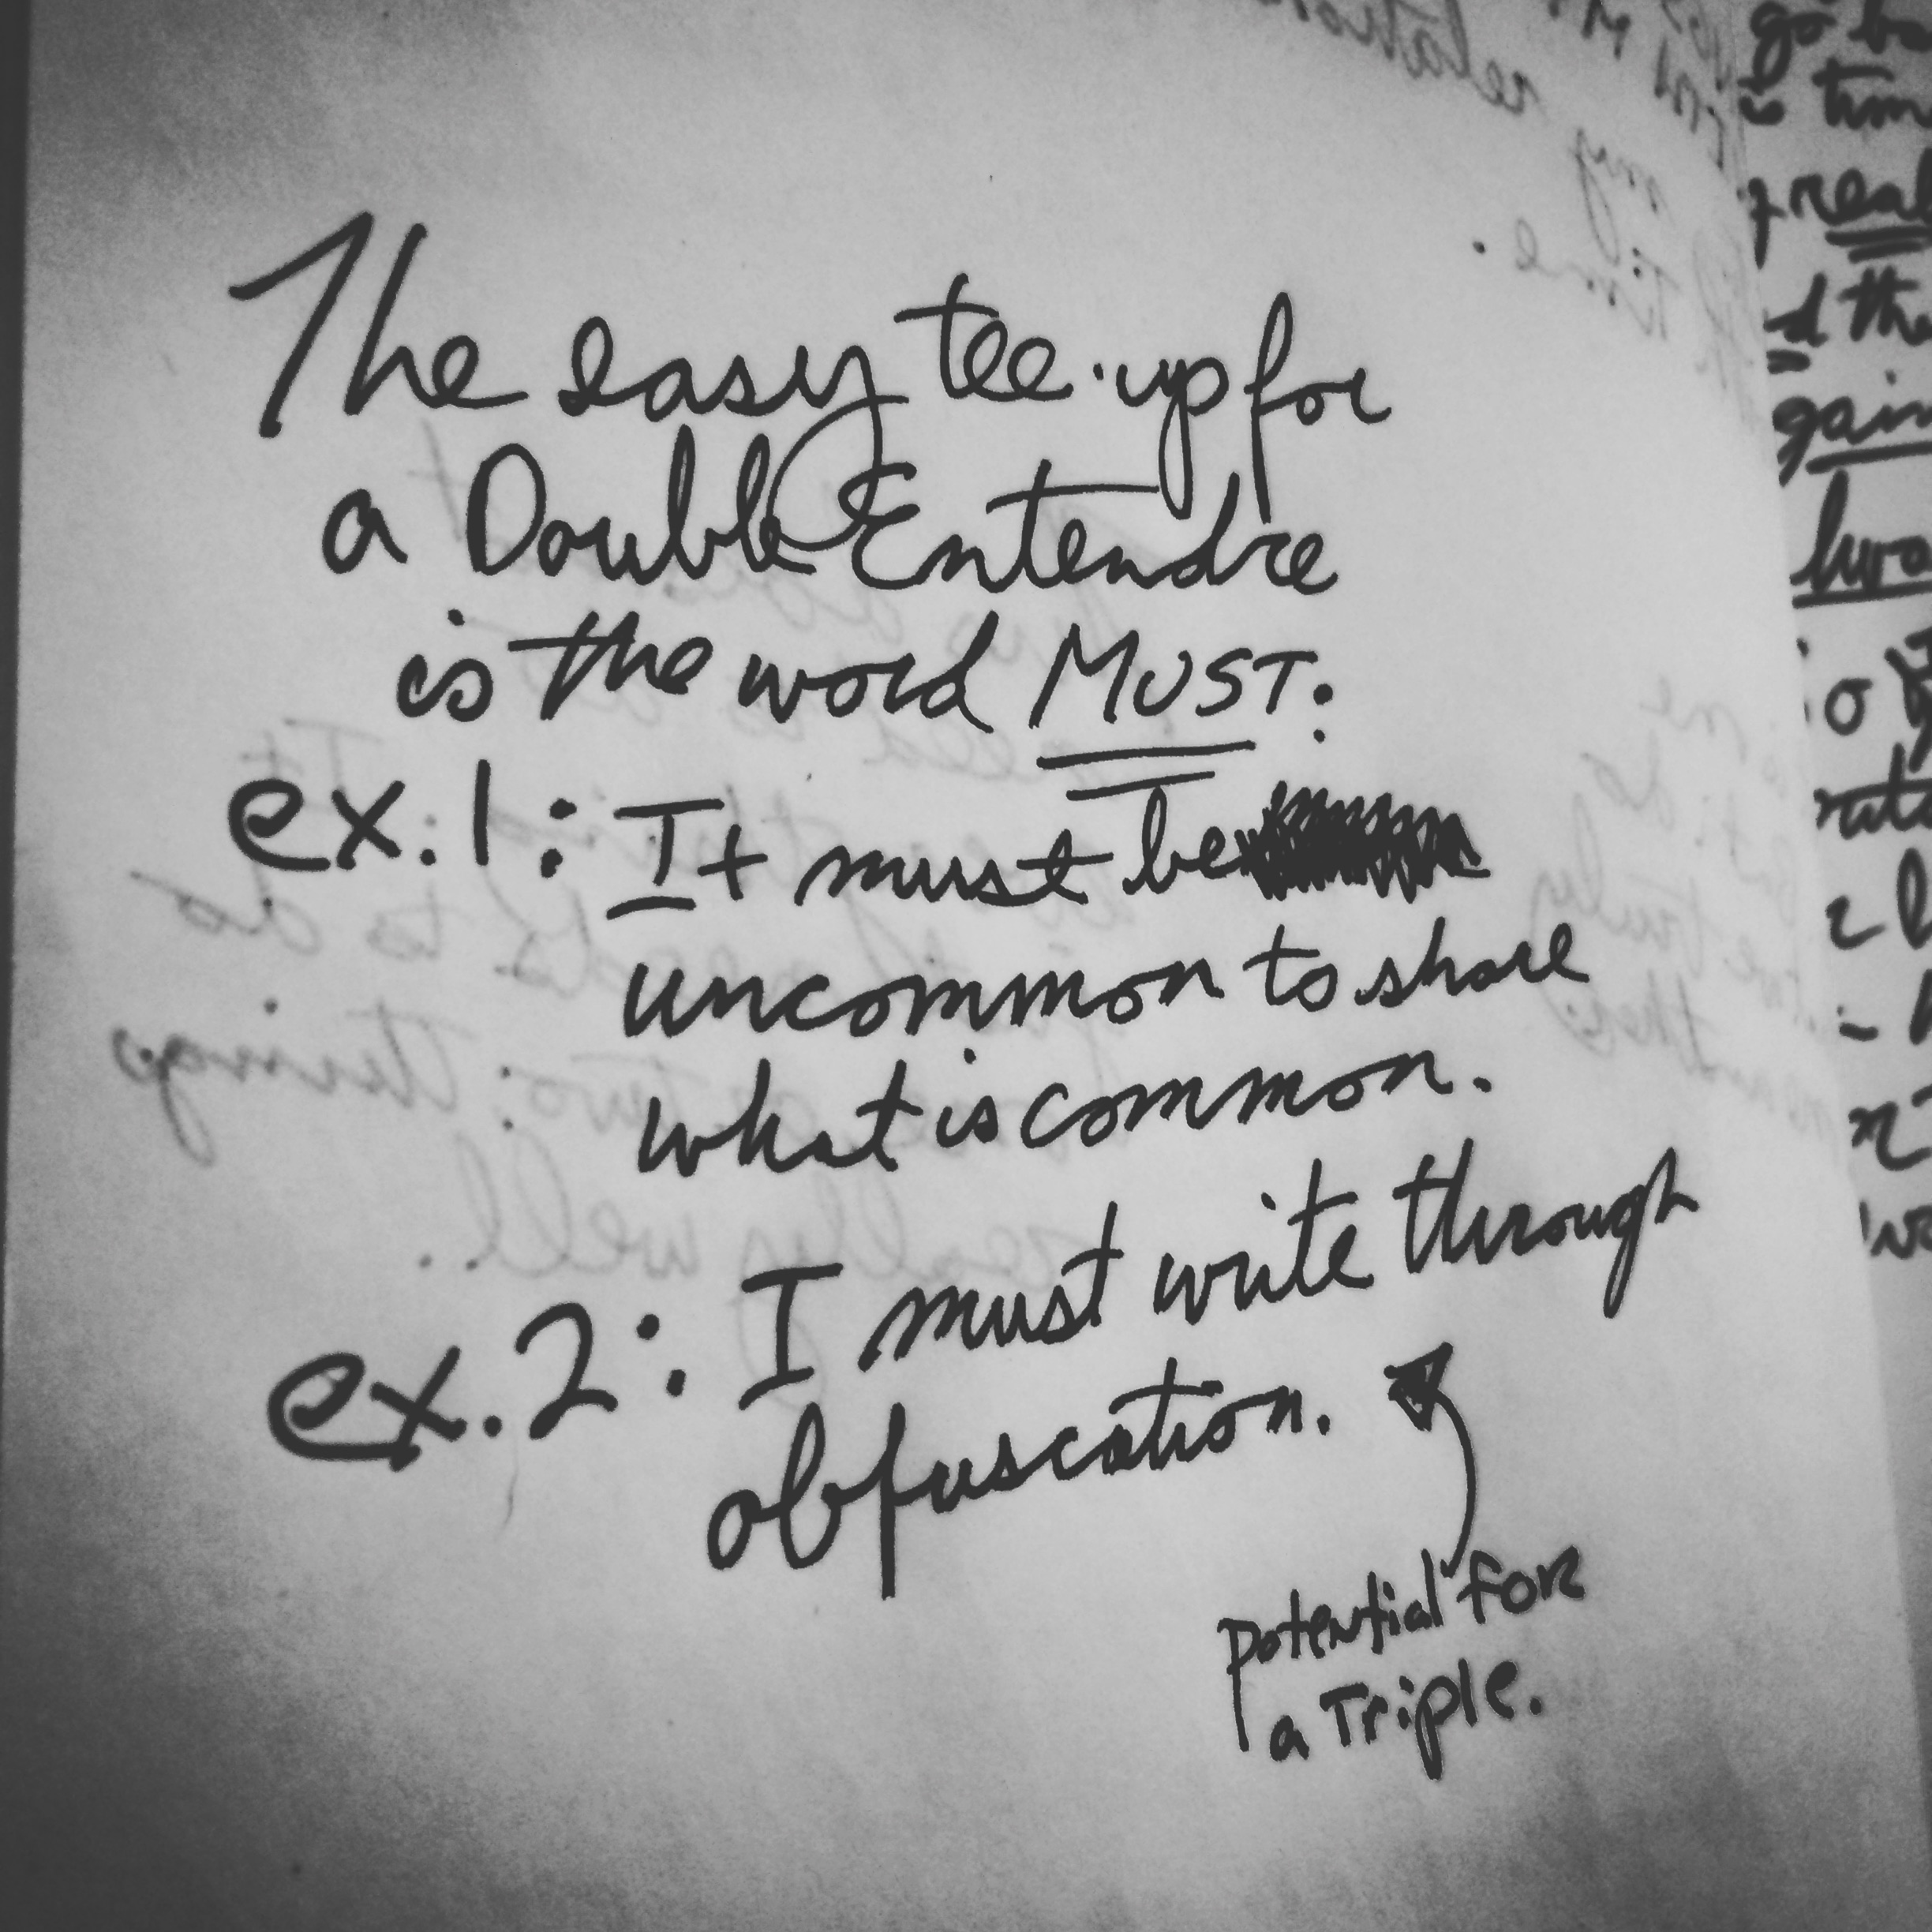 The easy tee-up for
a Double Entendre
is the word MUST:
ex. 1: It must be
uncommon to share
what is common.
ex. 2: I must write through
obfuscation.
potential for
a Triple.
go
time
real
the
gain